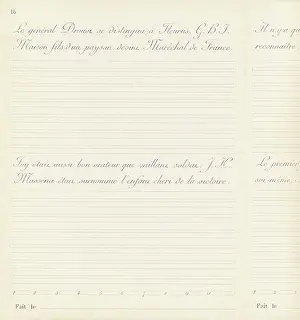 16
Le général Drouot se distingua à Fleurus, G. H. I.
Maison fils d'un paysan devint Maréchal de France.
Il n'y a qu
reconnaître
Foy était aussi bon orateur que vaillant soldat, J. K.
Masséna était surnommé l'enfant chéri de la victoire.
Le premier
soi-même
1 2 3 4 5 6 7 8 9 0
1 2 3
Fait le
Fait le